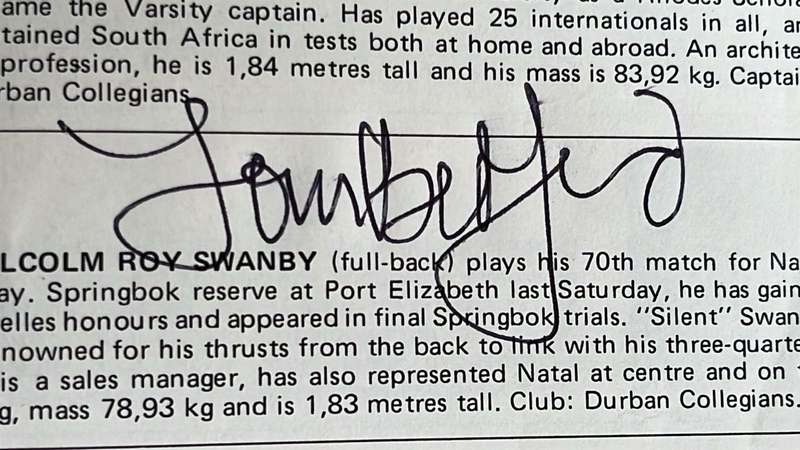 ame the Varsity captain. Has played 25 internationals in all, a
tained South Africa in tests both at home and abroad. An archite
profession, he is 1,84 metres tall and his mass is 83,92 kg. Captai
rban Collegians.
LCOLM ROY SWANBY (full-back) plays his 70th match for Na
ay. Springbok reserve at Port Elizabeth last Saturday, he has gain
elles honours and appeared in final Springbok trials. "Silent" Swan
nowned for his thrusts from the back to link with his three-quarte
is a sales manager, has also represented Natal at centre and on
g, mass 78,93 kg and is 1,83 metres tall. Club: Durban Collegians.